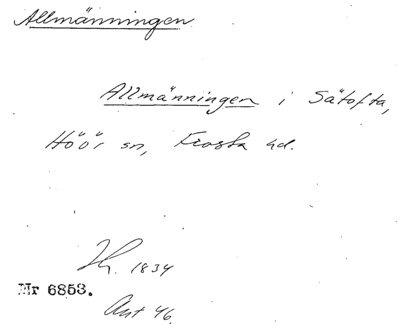 Allmänningen
Allmänningen i Sätofta,
Höör sn, Frosta hd.
1834
Nr 6853.
Ant 46